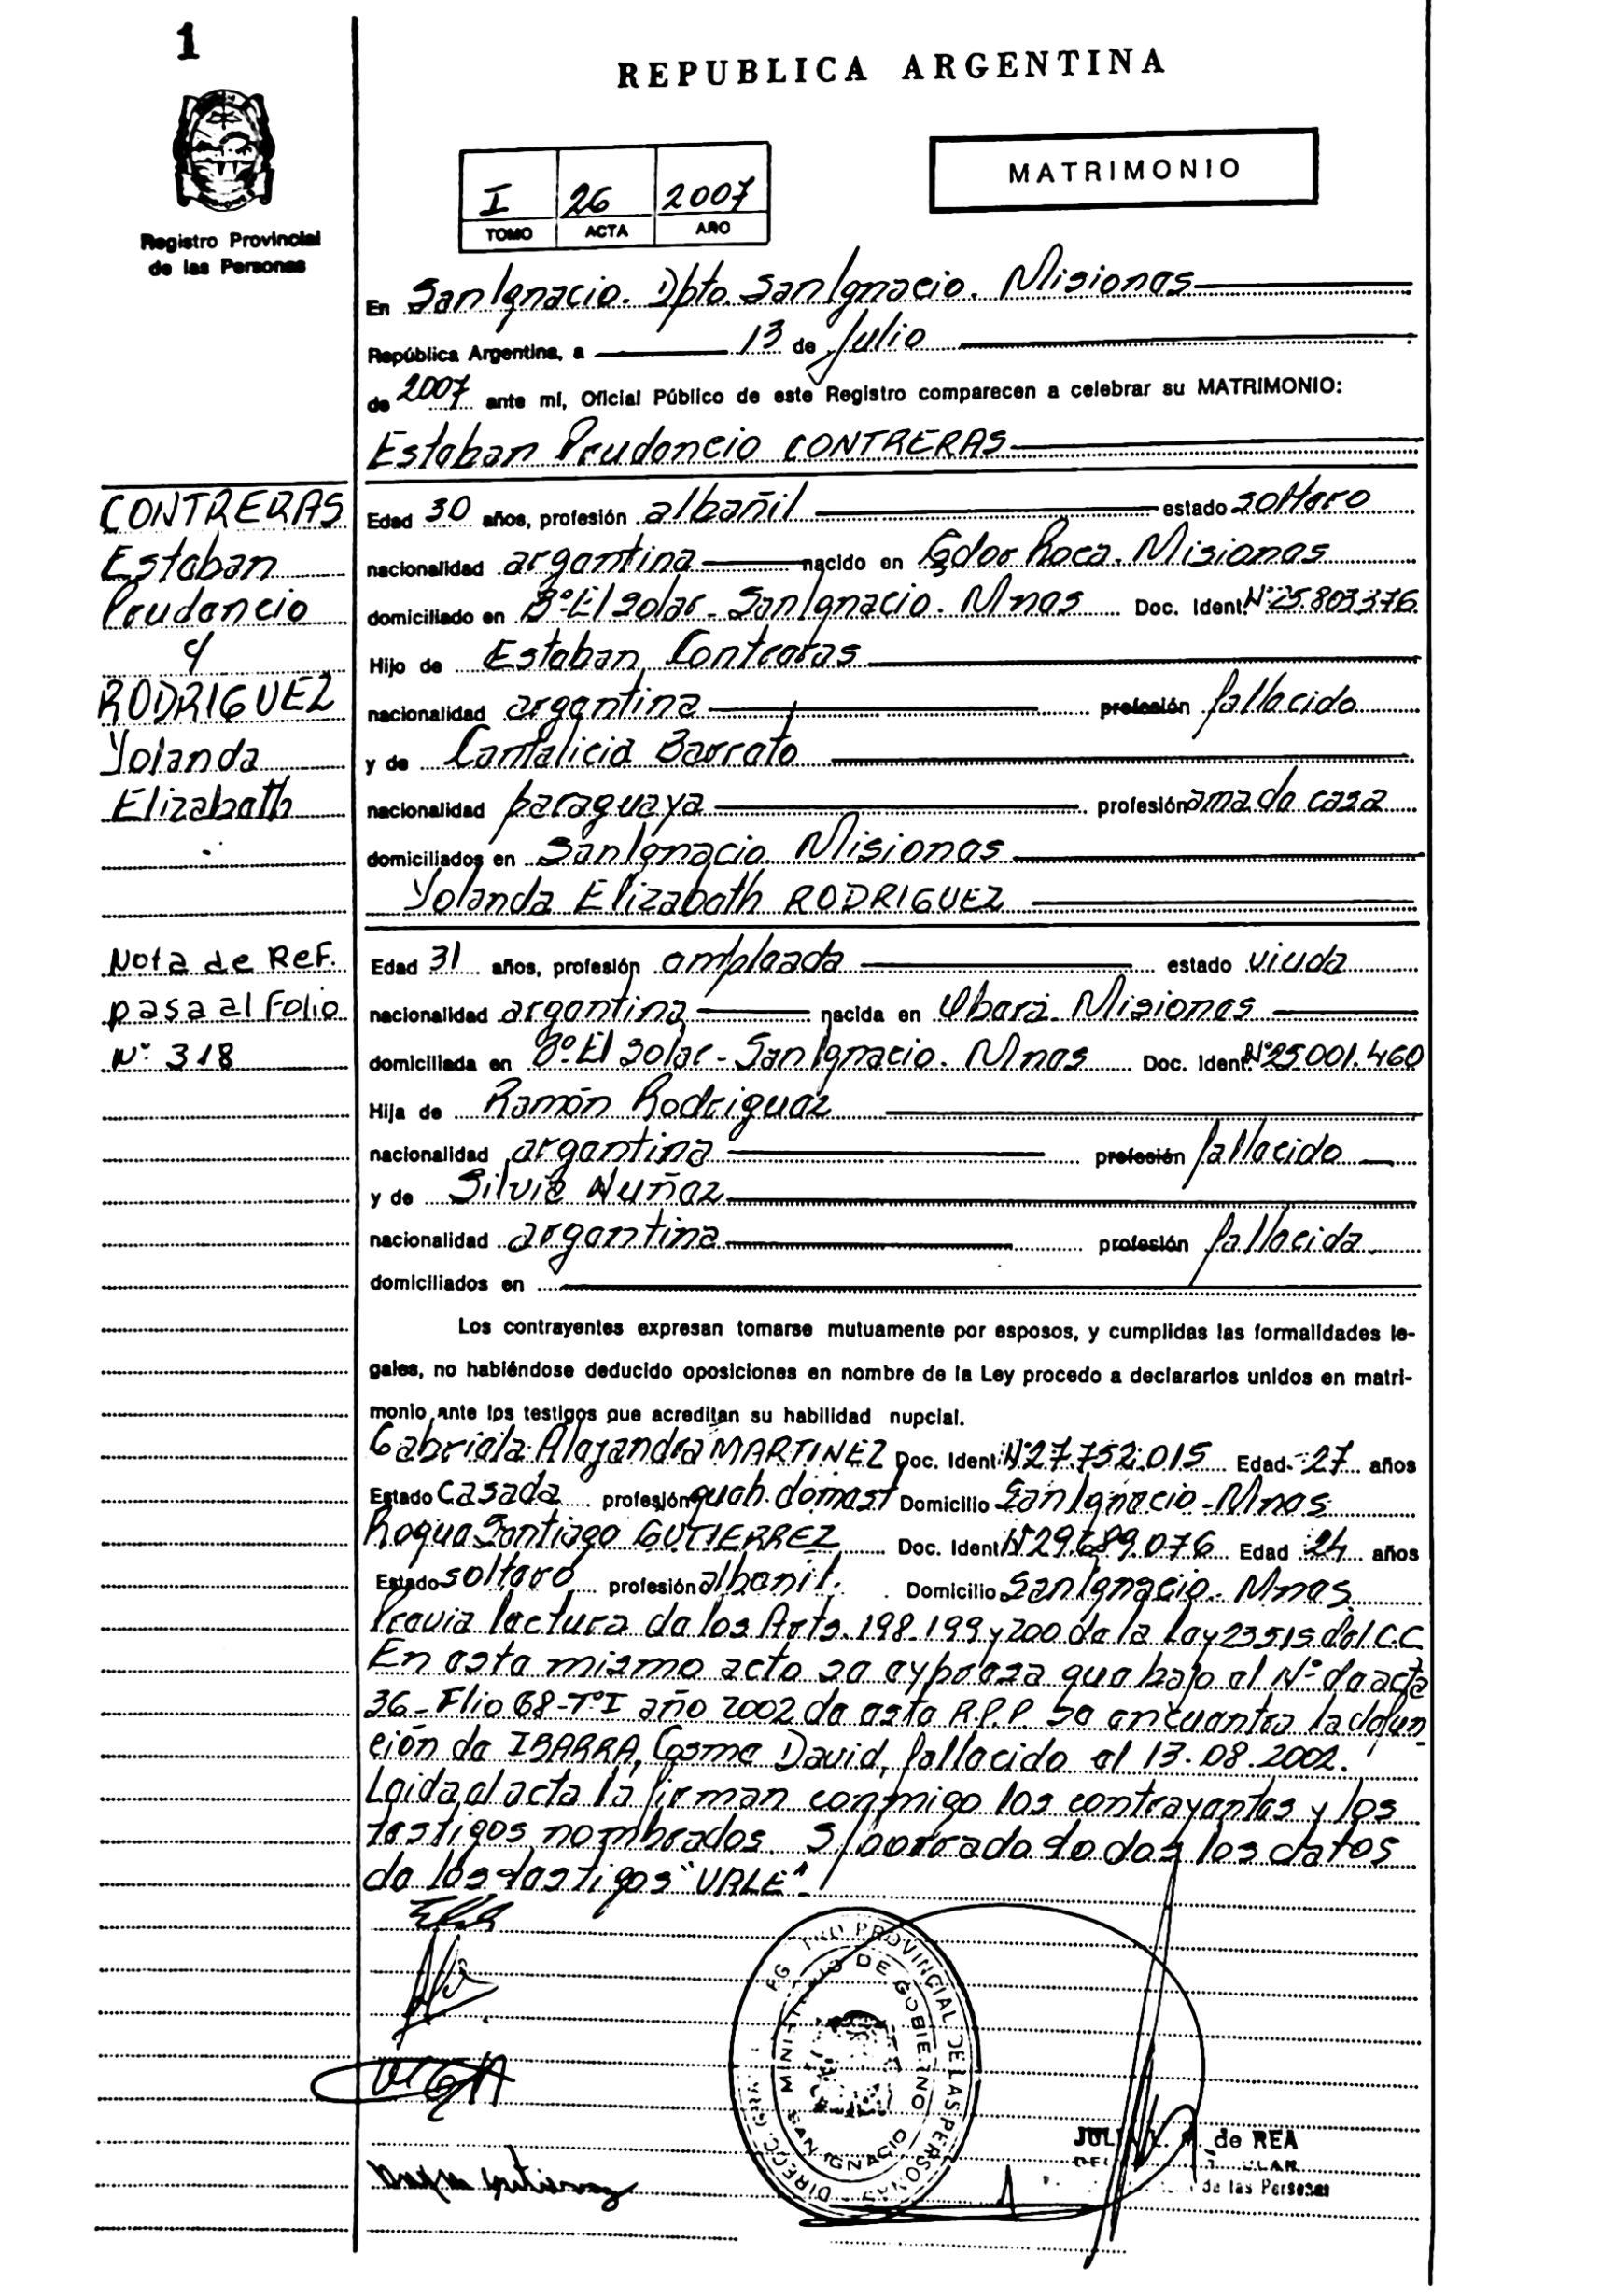 1
REPUBLICA ARGENTINA
MATRIMONIO
I 26 2007
TOMO ACTA AÑO
Registro Provincial
de las Personas
En San Ignacio. Dpto. San Ignacio. Misiones
República Argentina, a 13 de Julio
de 2007 ante mí, Oficial Público de este Registro comparecen a celebrar su MATRIMONIO:
Esteban Prudencio CONTRERAS
CONTRERAS
Esteban
Prudencio
y
RODRIGUEZ
Yolanda
Elizabeth
Edad 30 años, profesión albañil estado soltero
nacionalidad argentina nacido en Gdor Roca. Misiones
domiciliado en B° El solar - San Ignacio. Mnes Doc. Ident. N° 25.803.376
Hijo de Esteban Contreras
nacionalidad argentina profesión fallecido
y de Cantalicia Barreto
nacionalidad paraguaya profesión ama de casa
domiciliados en San Ignacio Misiones
Yolanda Elizabeth RODRIGUEZ
Nota de Ref.
pasa al Folio
N° 318
Edad 31 años, profesión empleada estado viuda
nacionalidad argentina nacida en Oberá. Misiones
domiciliada en B° El solar - San Ignacio. Mnes Doc. Ident. N° 25.001.460
Hija de Ramón Rodriguez
nacionalidad argentina profesión fallecido
y de Silvia Nuñez
nacionalidad argentina profesión fallecida
domiciliados en
Los contrayentes expresan tomarse mutuamente por esposos, y cumplidas las formalidades le-
gales, no habiéndose deducido oposiciones en nombre de la Ley procedo a declararlos unidos en matri-
monio ante los testigos que acreditan su habilidad nupcial.
Gabriela Alejandra MARTINEZ Doc. Ident. N° 27.752.015 Edad 27 años
Estado casada profesión queh. domest Domicilio San Ignacio - Mnes
Roque Santiago GUTIERREZ Doc. Ident. N° 29.689.076 Edad 24 años
Estado soltero profesión albanil. Domicilio San Ignacio. Mnes
Previa lectura de los Arts. 198.199 y 200 de la Ley 23515 del C.C
En este mismo acto se expresa que bajo el N° de acta
36 - Flio 68 - T° I año 2002 de este R.P.P. se encuentra la defun
ción de IBARRA, Cosme David, fallecido el 13.08.2002.
Leida el acta la firman conmigo los contrayentes y los
testigos nombrados. S/borrado todos los datos
de los testigos "VALE"
PROVINCIAL DE LAS PERSONAS
MINISTERIO DE GOBIERNO
SAN IGNACIO
de REA
de las Personas